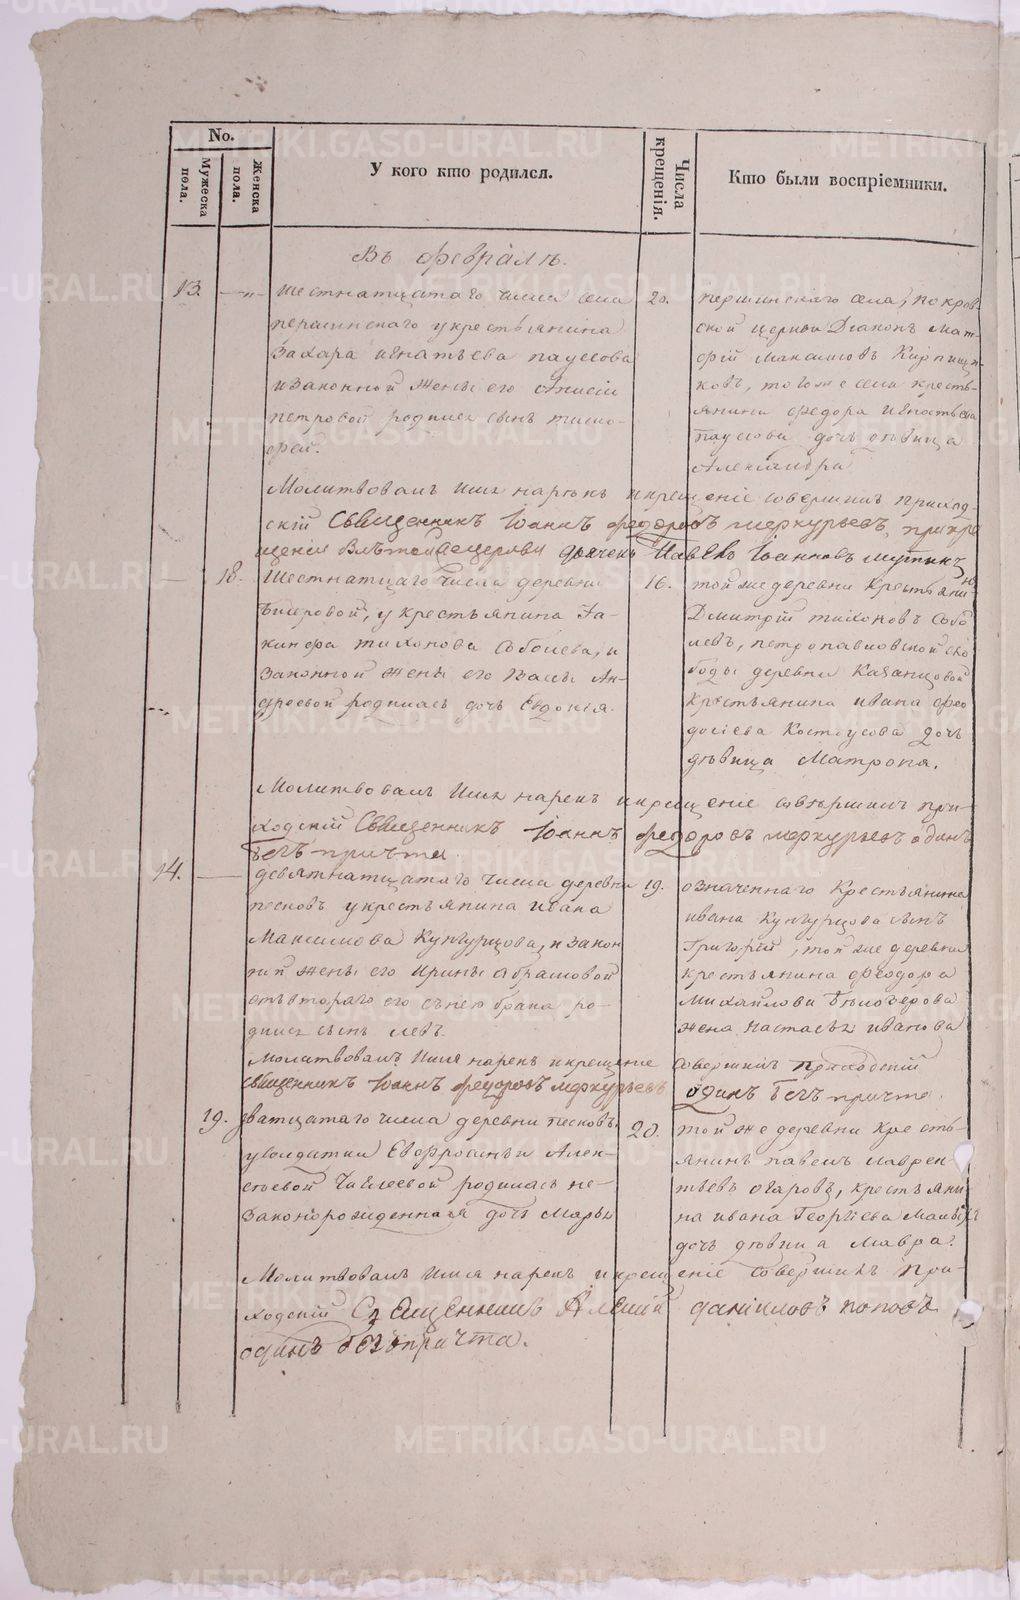 No.
Мужеска пола.
Женска пола.
У кого кто родился.
Числа крещенія.
Кто были воспріемники.
Въ февралѣ.
13.
шестнатцатаго числа села
першинскаго укрестьянина
Захара игнатьева
изаконной жены его Анисіи
петровой родился сынъ тимо-
фей.
20.
першинскаго села, покров
ской церкви Діаконъ Мат-
фій Максимовъ Кирпищи-
ковъ, тогоже села кресть-
янина федора игнатьева
дочь дѣвица
Александра
Молитвовалъ Имя нарекъ икрещеніе совершилъ приход-
скій Священникъ Іоаннъ федоровъ меркурьевъ, прикре
щеніи дьячекъ Павелъ Іоанновъ
18.
Шестнатцаго числа деревни
укрестьянина Іа-
кинфа тихонова Соболева, и
Законной жены его Вассы Ан-
дреевой родилась дочь Евдокія.
16.
тойже деревни Крестьянинъ
Дмитрій тихоновъ Собо
левъ, петропавловской сло
боды деревни Казанцовой
Крестьянина ивана фео
досіева Костоусова дочь
дѣвица Матрона.
Молитвовалъ Имя нарекъ икрещеніе совершилъ при-
ходскій Священникъ Іоаннъ феодоровъ меркурьевъ одинъ
безъ причта.
14.
девятнатцатаго числа деревни
песковъ укрестьянина ивана
Максимова Кунгурцова, и Закон
ной жены его Ирины Абрамовой
отъ втораго его с нею брака ро-
дился сынъ левъ.
19.
означеннаго Крестьянина
ивана Кунгурцова сынъ
Григорій, той же деревни
крестьянина феодора
Михайлова Бѣлозерова
жена настасья иванова
Молитвовалъ Имя нарекъ икрещеніе совершилъ Приходскій
священникъ Іоаннъ федоровъ меркурьевъ одинъ безъ причта.
19.
дватцатаго числа деревни песковъ,
усолдатки Евфросиньи Алек-
сѣевой родилась не-
законорожденная дочь Марья
20.
той же деревни кресть-
янинъ павелъ лаврен-
тьевъ огаровъ, крестьяни
на ивана Георгіева
дочь дѣвица Мавра.
Молитвовалъ Имя нарекъ икрещеніе Совершилъ При-
ходскій Священникъ Алексій данііловъ поповъ
одинъ безъ причта.